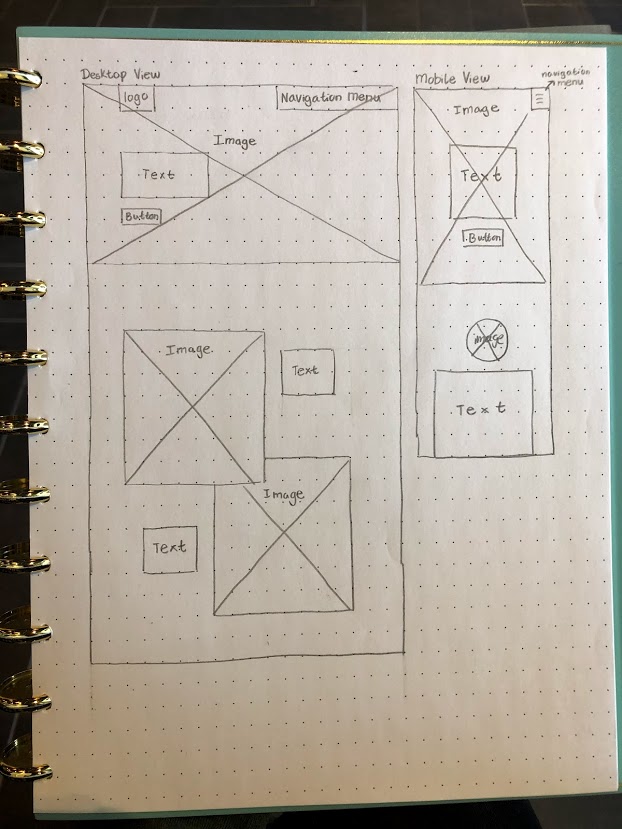 Desktop View
logo
Navigation menu
Image
Text
Button
Image
Text
Image
Text
Mobile View
navigation
menu
Image
Text
Button
image
Text